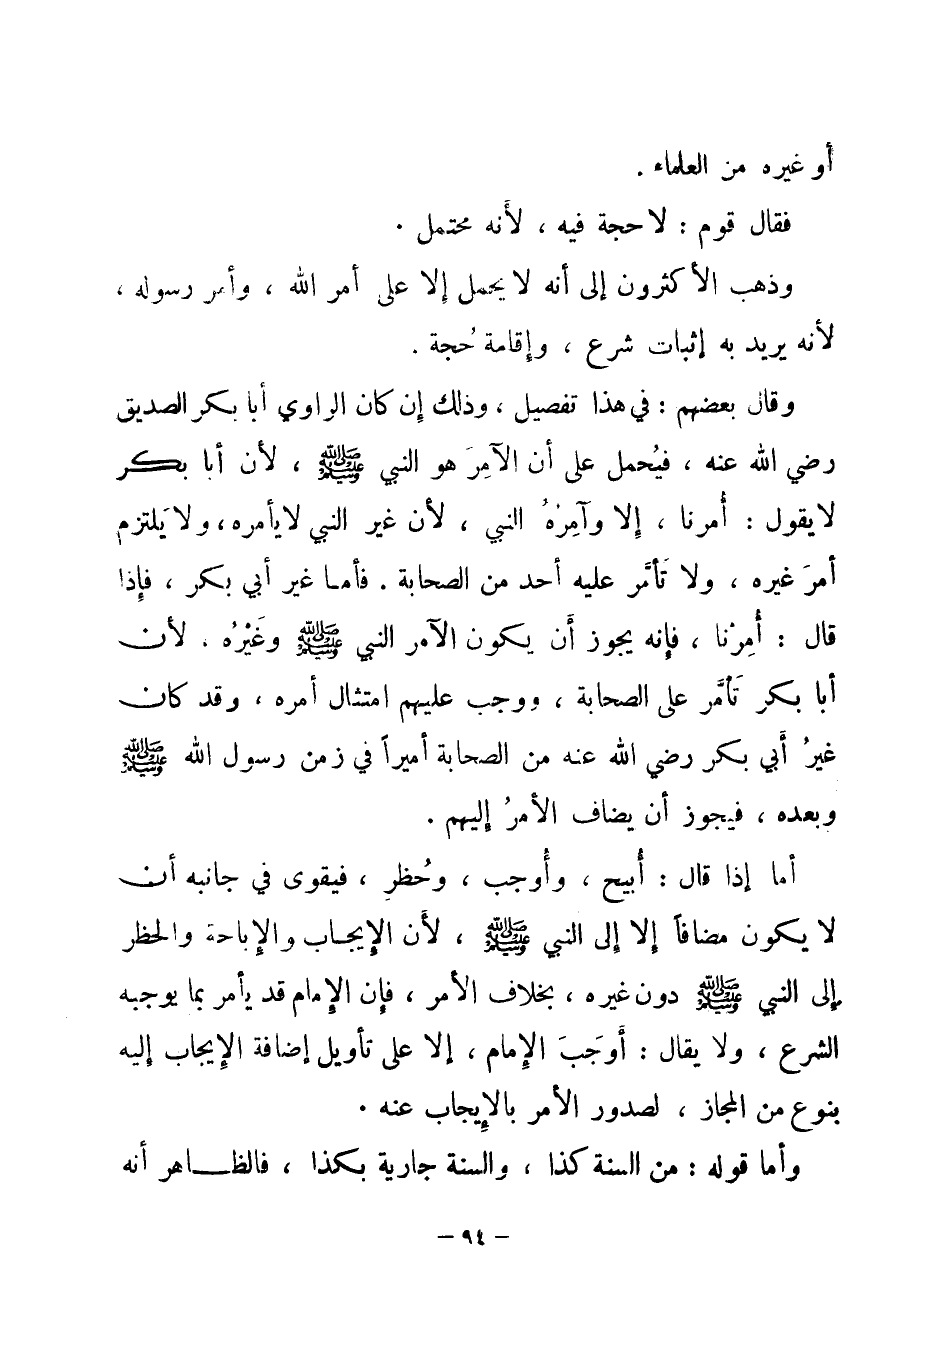 أو غيره من العلماء .
فقال قوم : لا حجة فيه ، لأنه محتمل .
وذهب الأكثرون إلى أنه لا يحمل إلا على أمر الله ، وأمر رسوله ،
لأنه يريد به إثبات شرع ، وإقامة حُجة .
وقال بعضهم : في هذا تفصيل ، وذلك إن كان الراوي أبا بكر الصديق
رضي الله عنه ، فيُحمل على أن الآمِرَ هو النبي ﷺ ، لأن أبا بكر
لا يقول : أُمرنا ، إلا وآمِرُهُ النبي ، لأن غير النبي لا يأمره ، ولا يَلتزم
أمرَ غيره ، ولا تَأمَّر عليه أحد من الصحابة . فأما غير أبي بكر ، فإذا
قال : أُمِرْنا ، فإنه يجوز أن يكون الآمر النبي ﷺ وغَيْرُه . لأن
أبا بكر تَأمَّر على الصحابة ، ووجب عليهم امتثال أمره ، وقد كان
غيرُ أبي بكر رضي الله عنه من الصحابة أميراً في زمن رسول الله ﷺ
وبعده ، فيجوز أن يضاف الأمرُ إليهم .
أما إذا قال : أُبيح ، وأُوجب ، وحُظر ، فيقوى في جانبه أن
لا يكون مضافاً إلا إلى النبي ﷺ ، لأن الإيجاب والإباحة والحظر
إلى النبي ﷺ دون غيره ، بخلاف الأمر ، فإن الإمام قد يأمر بما يوجبه
الشرع ، ولا يقال : أَوجَبَ الإمام ، إلا على تأويل إضافة الإيجاب إليه
بنوع من المجاز ، لصدور الأمر بالإيجاب عنه .
وأما قوله : من السنة كذا ، والسنة جارية بكذا ، فالظاهر أنه
– ٩٤ –